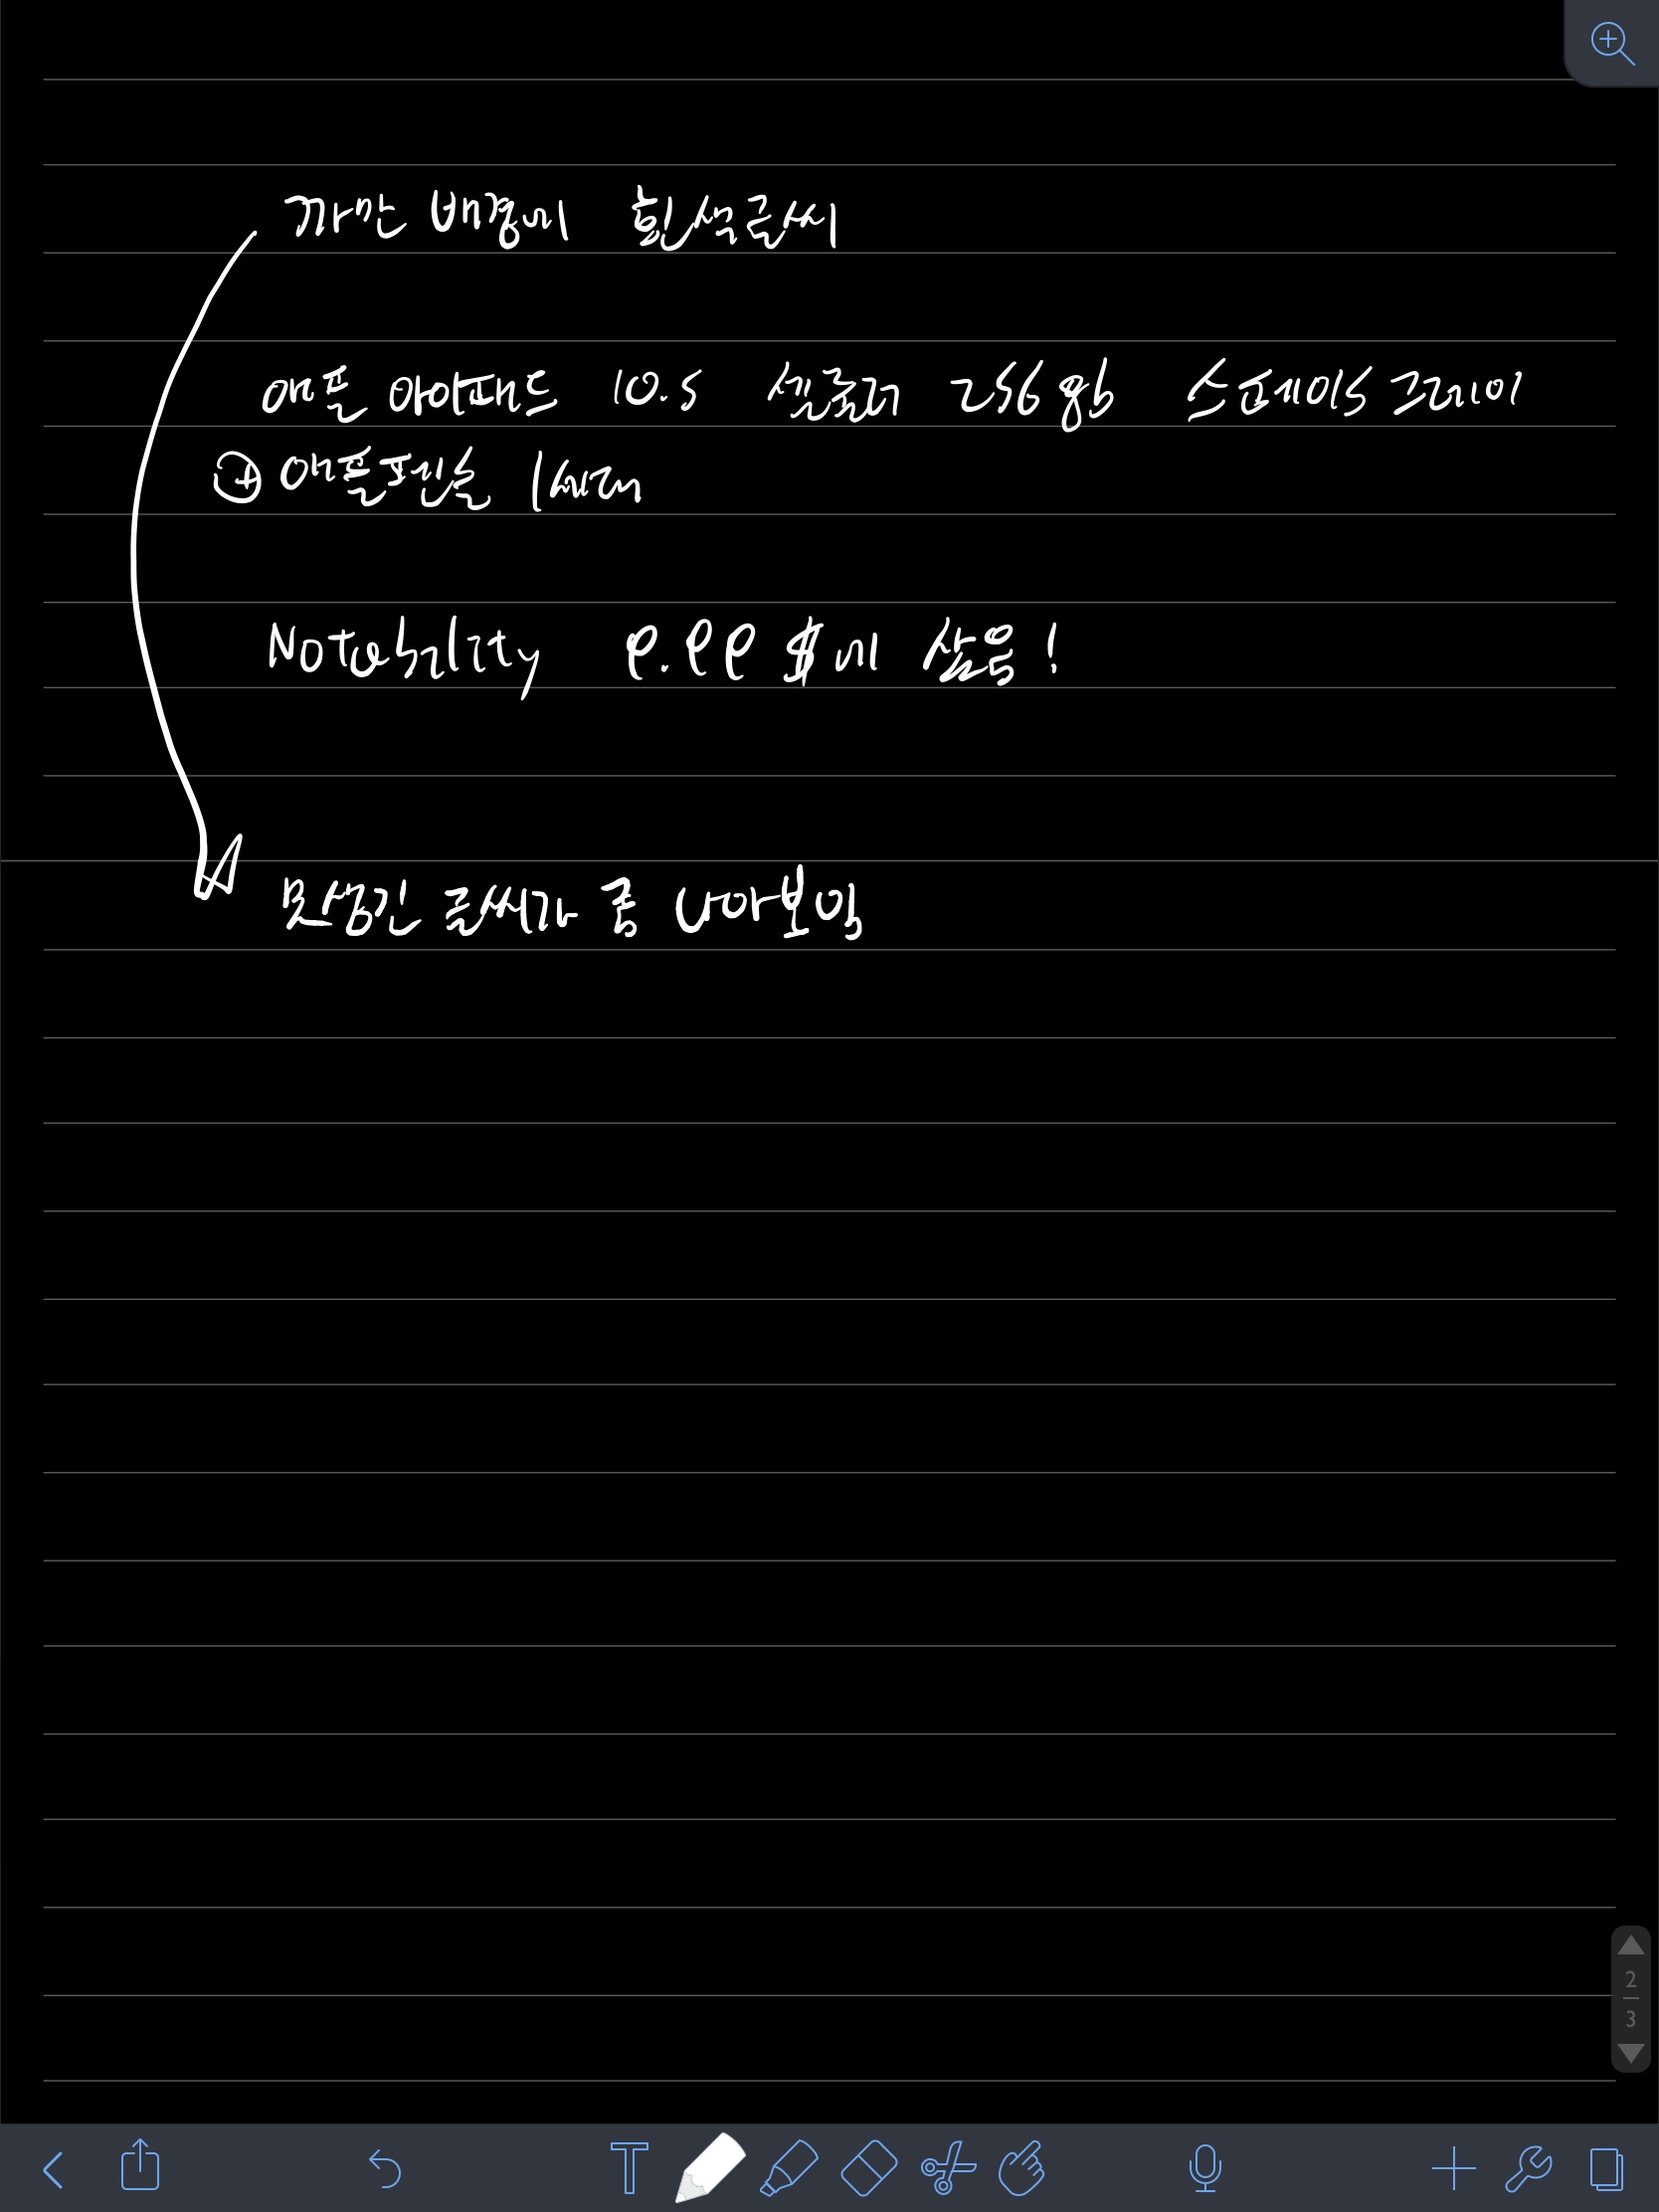 까만 배경에 흰색글씨
애플 아이패드 10.5 셀룰러 256gb 스페이스 그레이
⊕ 애플펜슬 1세대
Notability 9.99$에 샀음!
못생긴 글씨가 좀 나아보임
2
3